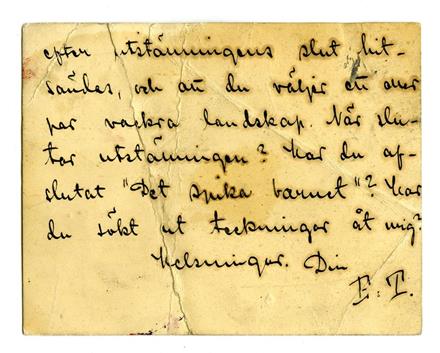 efter utställningens slut hit-
sändes, och att du väljer ett eller
par vackra landskap. När slu-
tar utställningen? Har du af-
slutat "Det sjuka barnet"? Har
du sökt ut teckningar åt mig?
Helsningar. Din
E. T.